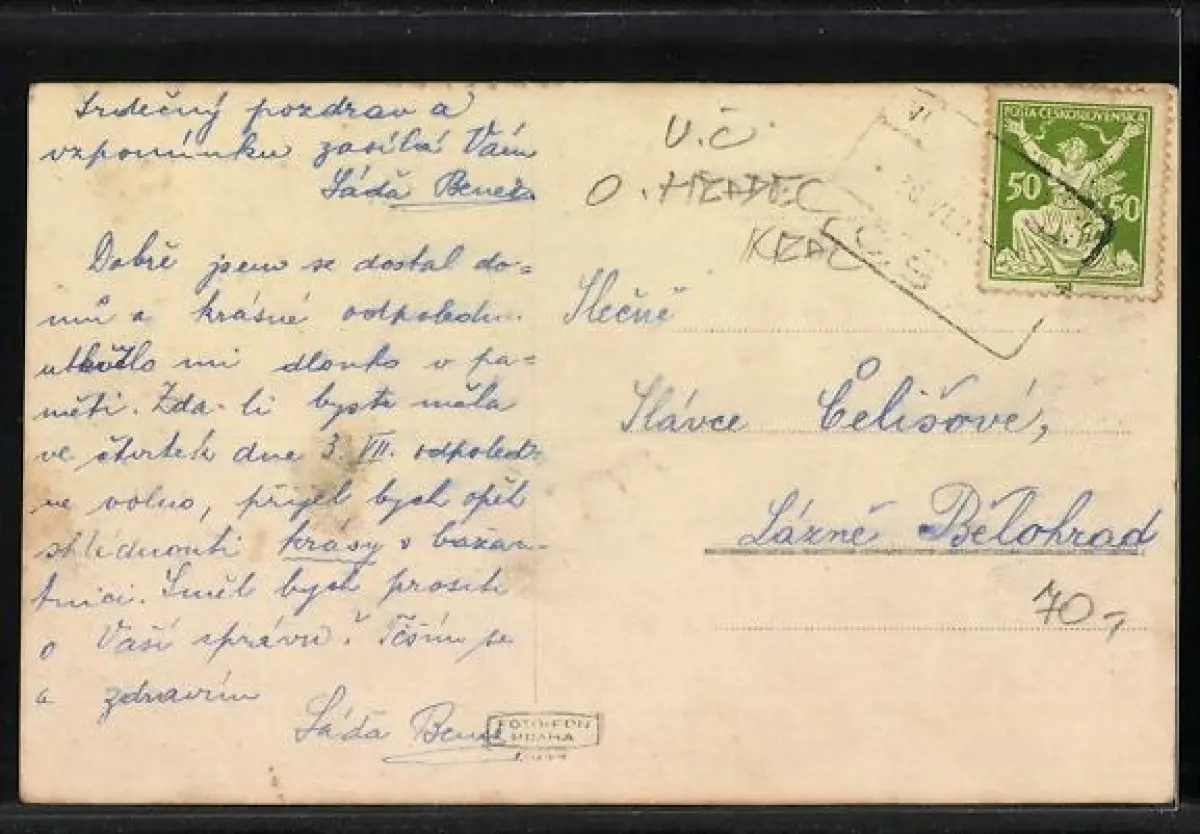 Srdečný pozdrav a
vzpomínku zasílá Vám
Láďa Beneš.
Dobře jsem se dostal do-
mů a krásné odpoledne
utkvělo mi dlouho v pa-
měti. Zda-li byste měla
ve čtvrtek dne 3. VII. odpoled-
ne volno, přijel bych opět
shlédnouti krásy v bažan-
tnici. Směl bych prositi
o Vaší zprávu? Těším se
a zdravím
Láďa Beneš
FOTOFON
PRAHA
V.Č.
O. HRADEC
KRAL
POŠTA ČESKOSLOVENSKÁ
50 50
Slečně
Slávce Čelišové,
Lázně Bělohrad
70,-